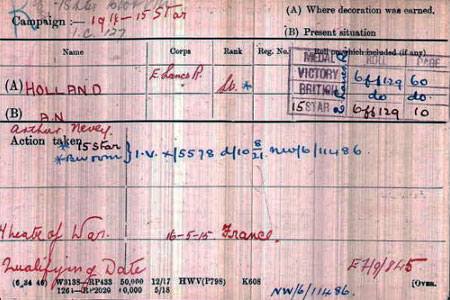 Campaign :— 1914-15 Star
(A) Where decoration was earned.
(B) Present situation
Name Corps Rank Reg. No. Roll on which included (if any)
MEDAL ROLL PAGE
(A) HOLLAND E. Lancs R. Lt. * VICTORY Off 129 60
BRITISH do do
(B) A.N 15 STAR Off 129 10
Arthur Nevey
Action taken * 15 Star
* BW & VM } I.V. */5578 d/10 8/21. NW/6/11486
Theatre of War. 16-5-15. France.
Qualifying Date E7/9/845
(6 34 46) W3138—RP433 50,000 12/17 HWV(P798) K608 [OVER.
1261—RP2029 5/18 NW/6/11486.